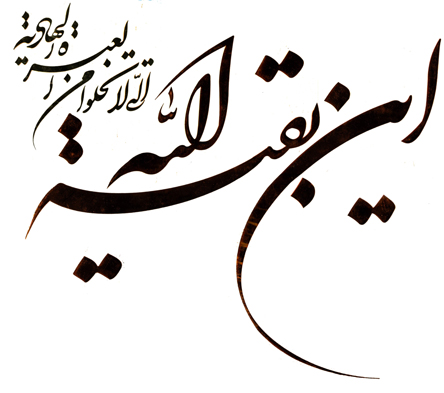 این بقیة الله
التی لا تخلوا من
العترة الهادیة